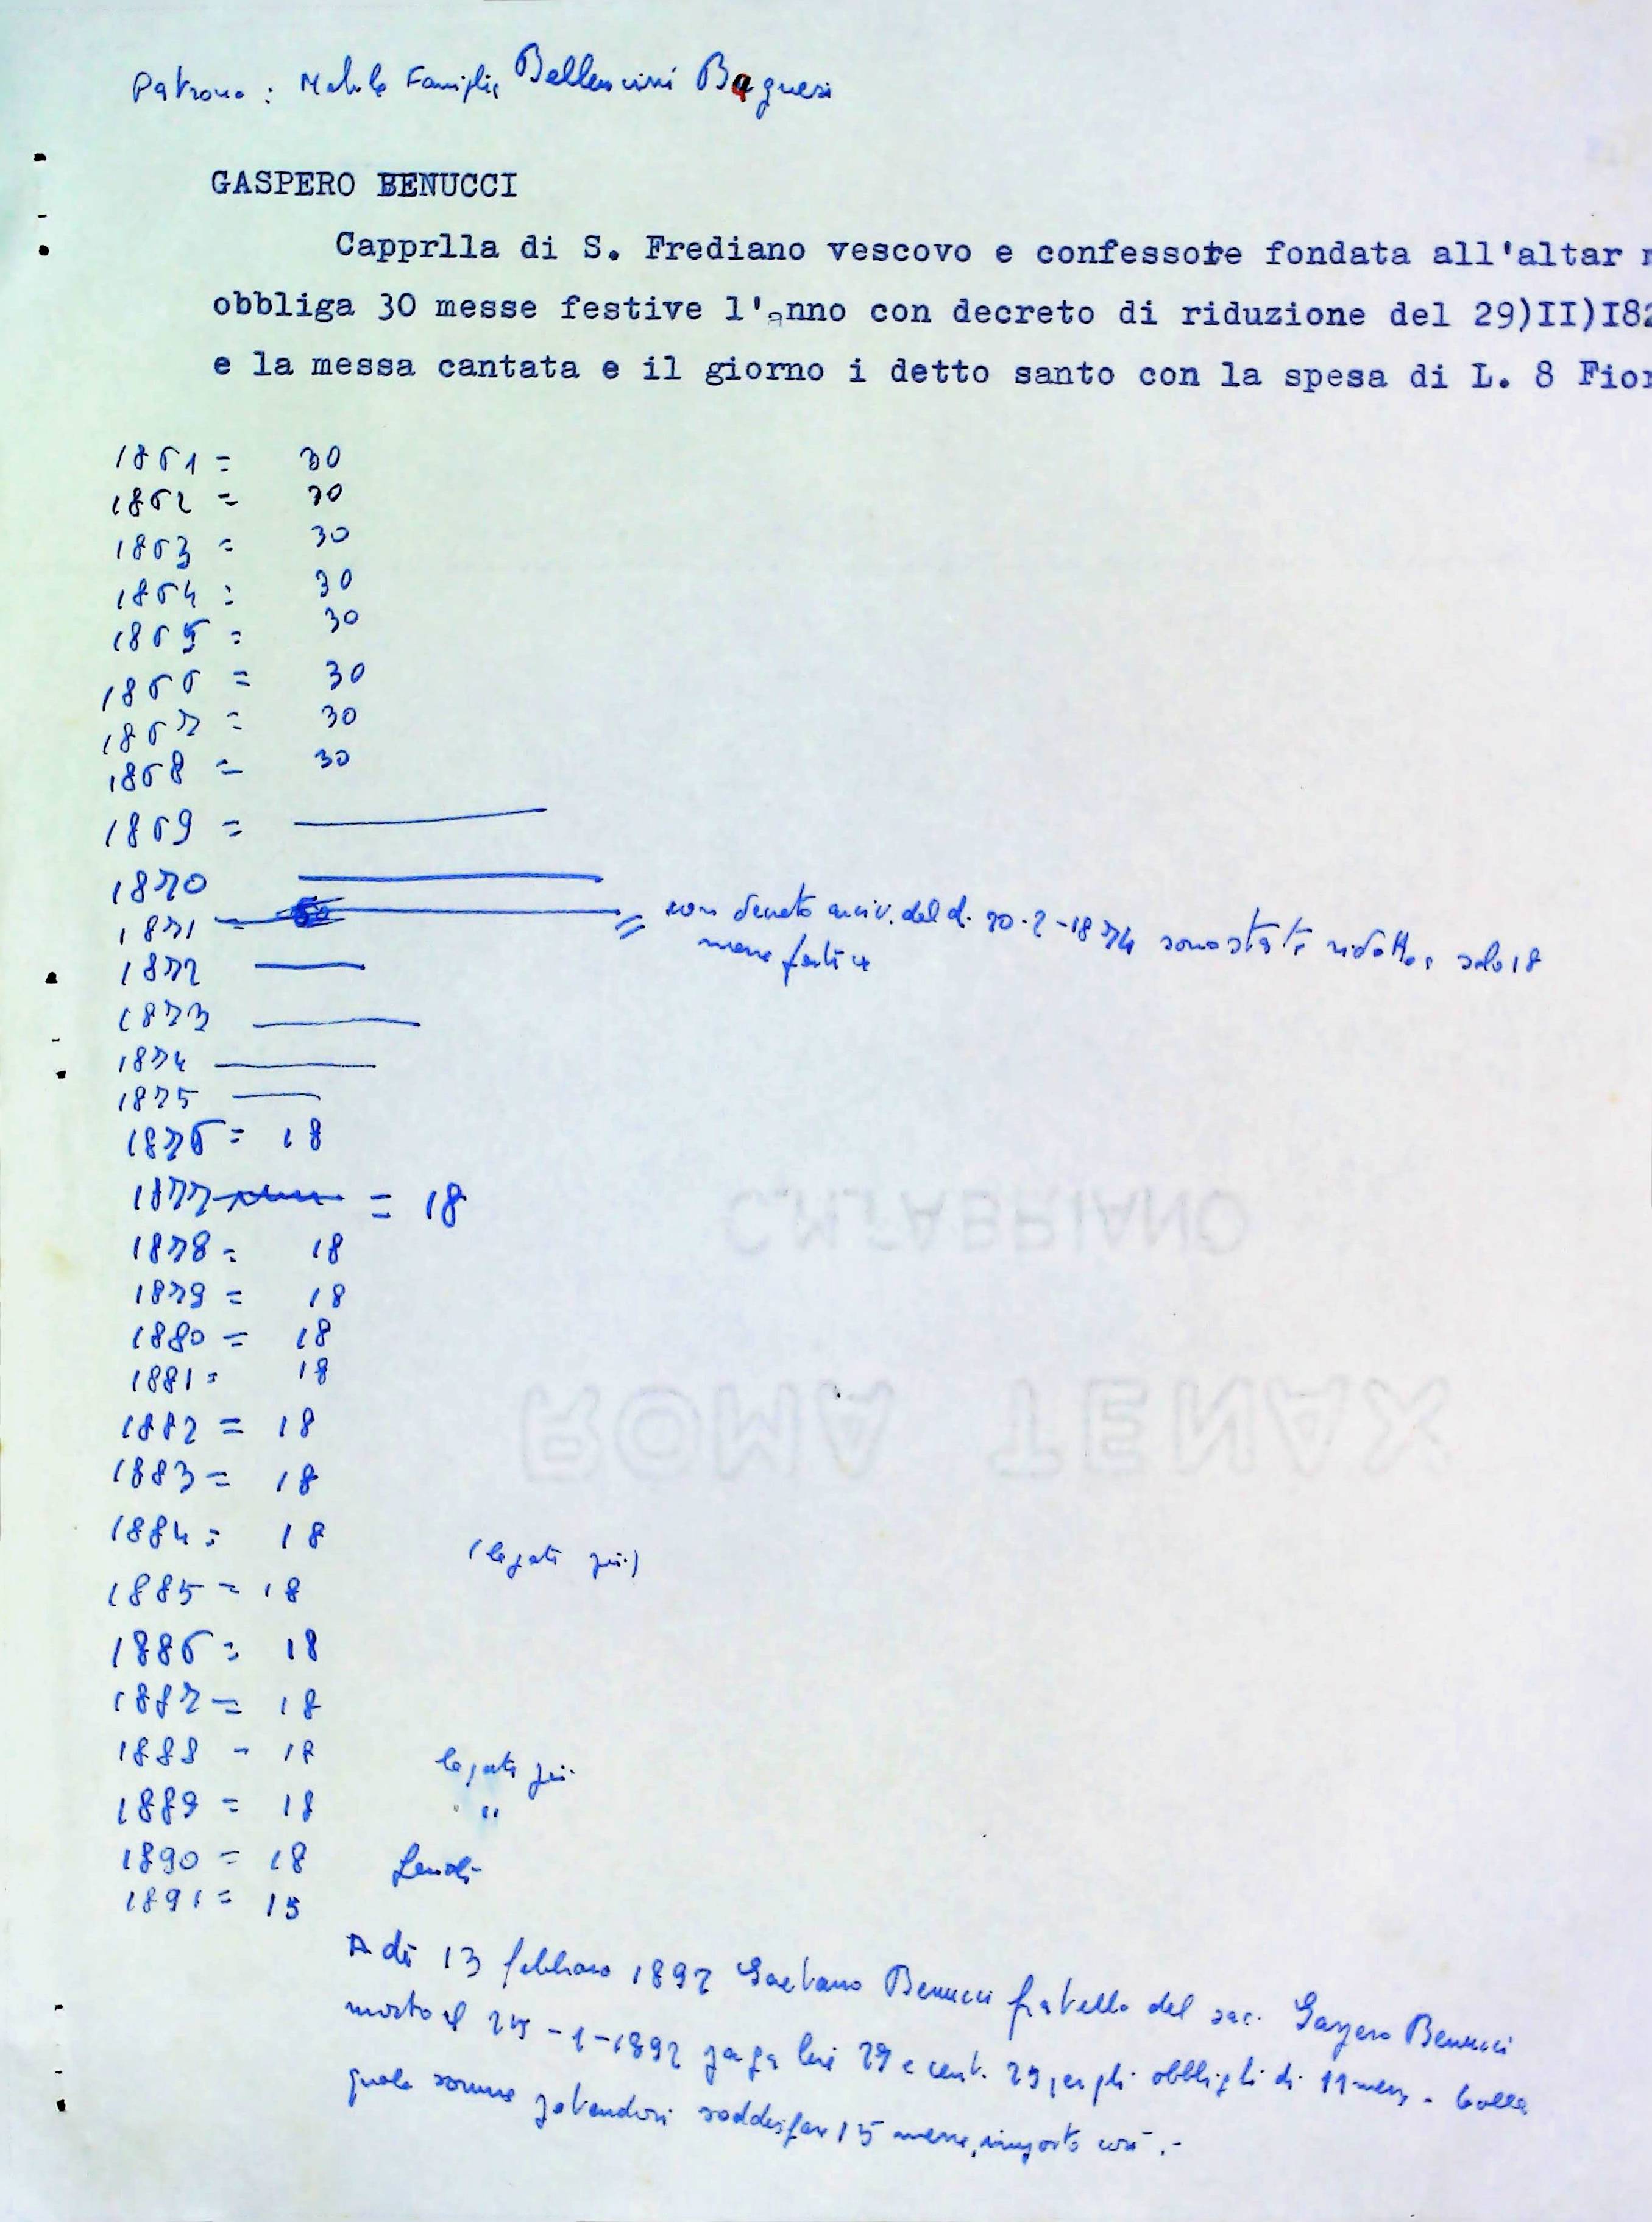 Patrono: Nobile Famiglia Bellincini Bagnesi
GASPERO BENUCCI
Capprlla di S. Frediano vescovo e confessore fondata all'altar
obbliga 30 messe festive l'anno con decreto di riduzione del 29)II)I82
e la messa cantata e il giorno i detto santo con la spesa di L. 8 Fior
1861 = 30
1862 = 30
1863 = 30
1864 = 30
1865 = 30
1866 = 30
1867 = 30
1868 = 30
1869 =
1870
1871 = con decreto arciv. del d. 20-2-1874 sono state ridotte a solo 18
messe festive
1872
1873
1874
1875
1876 = 18
1877 = 18
1878 = 18
1879 = 18
1880 = 18
1881 = 18
1882 = 18
1883 = 18
1884 = 18 (legati pii)
1885 = 18
1886 = 18
1887 = 18
1888 - 18 legati pii
1889 = 18 "
1890 = 18
1891 = 15
A dì 13 febbraio 1892 Gaetano Benucci fratello del sac. Gaspero Benucci
morto il 25-1-1892 paga lire 29 e cent. 29 per gli obblighi di 11 mesi - colla
quale somma potendosi soddisfare 15 messe, importo così.-
C.M.FABRIANO
ROMA TENAX